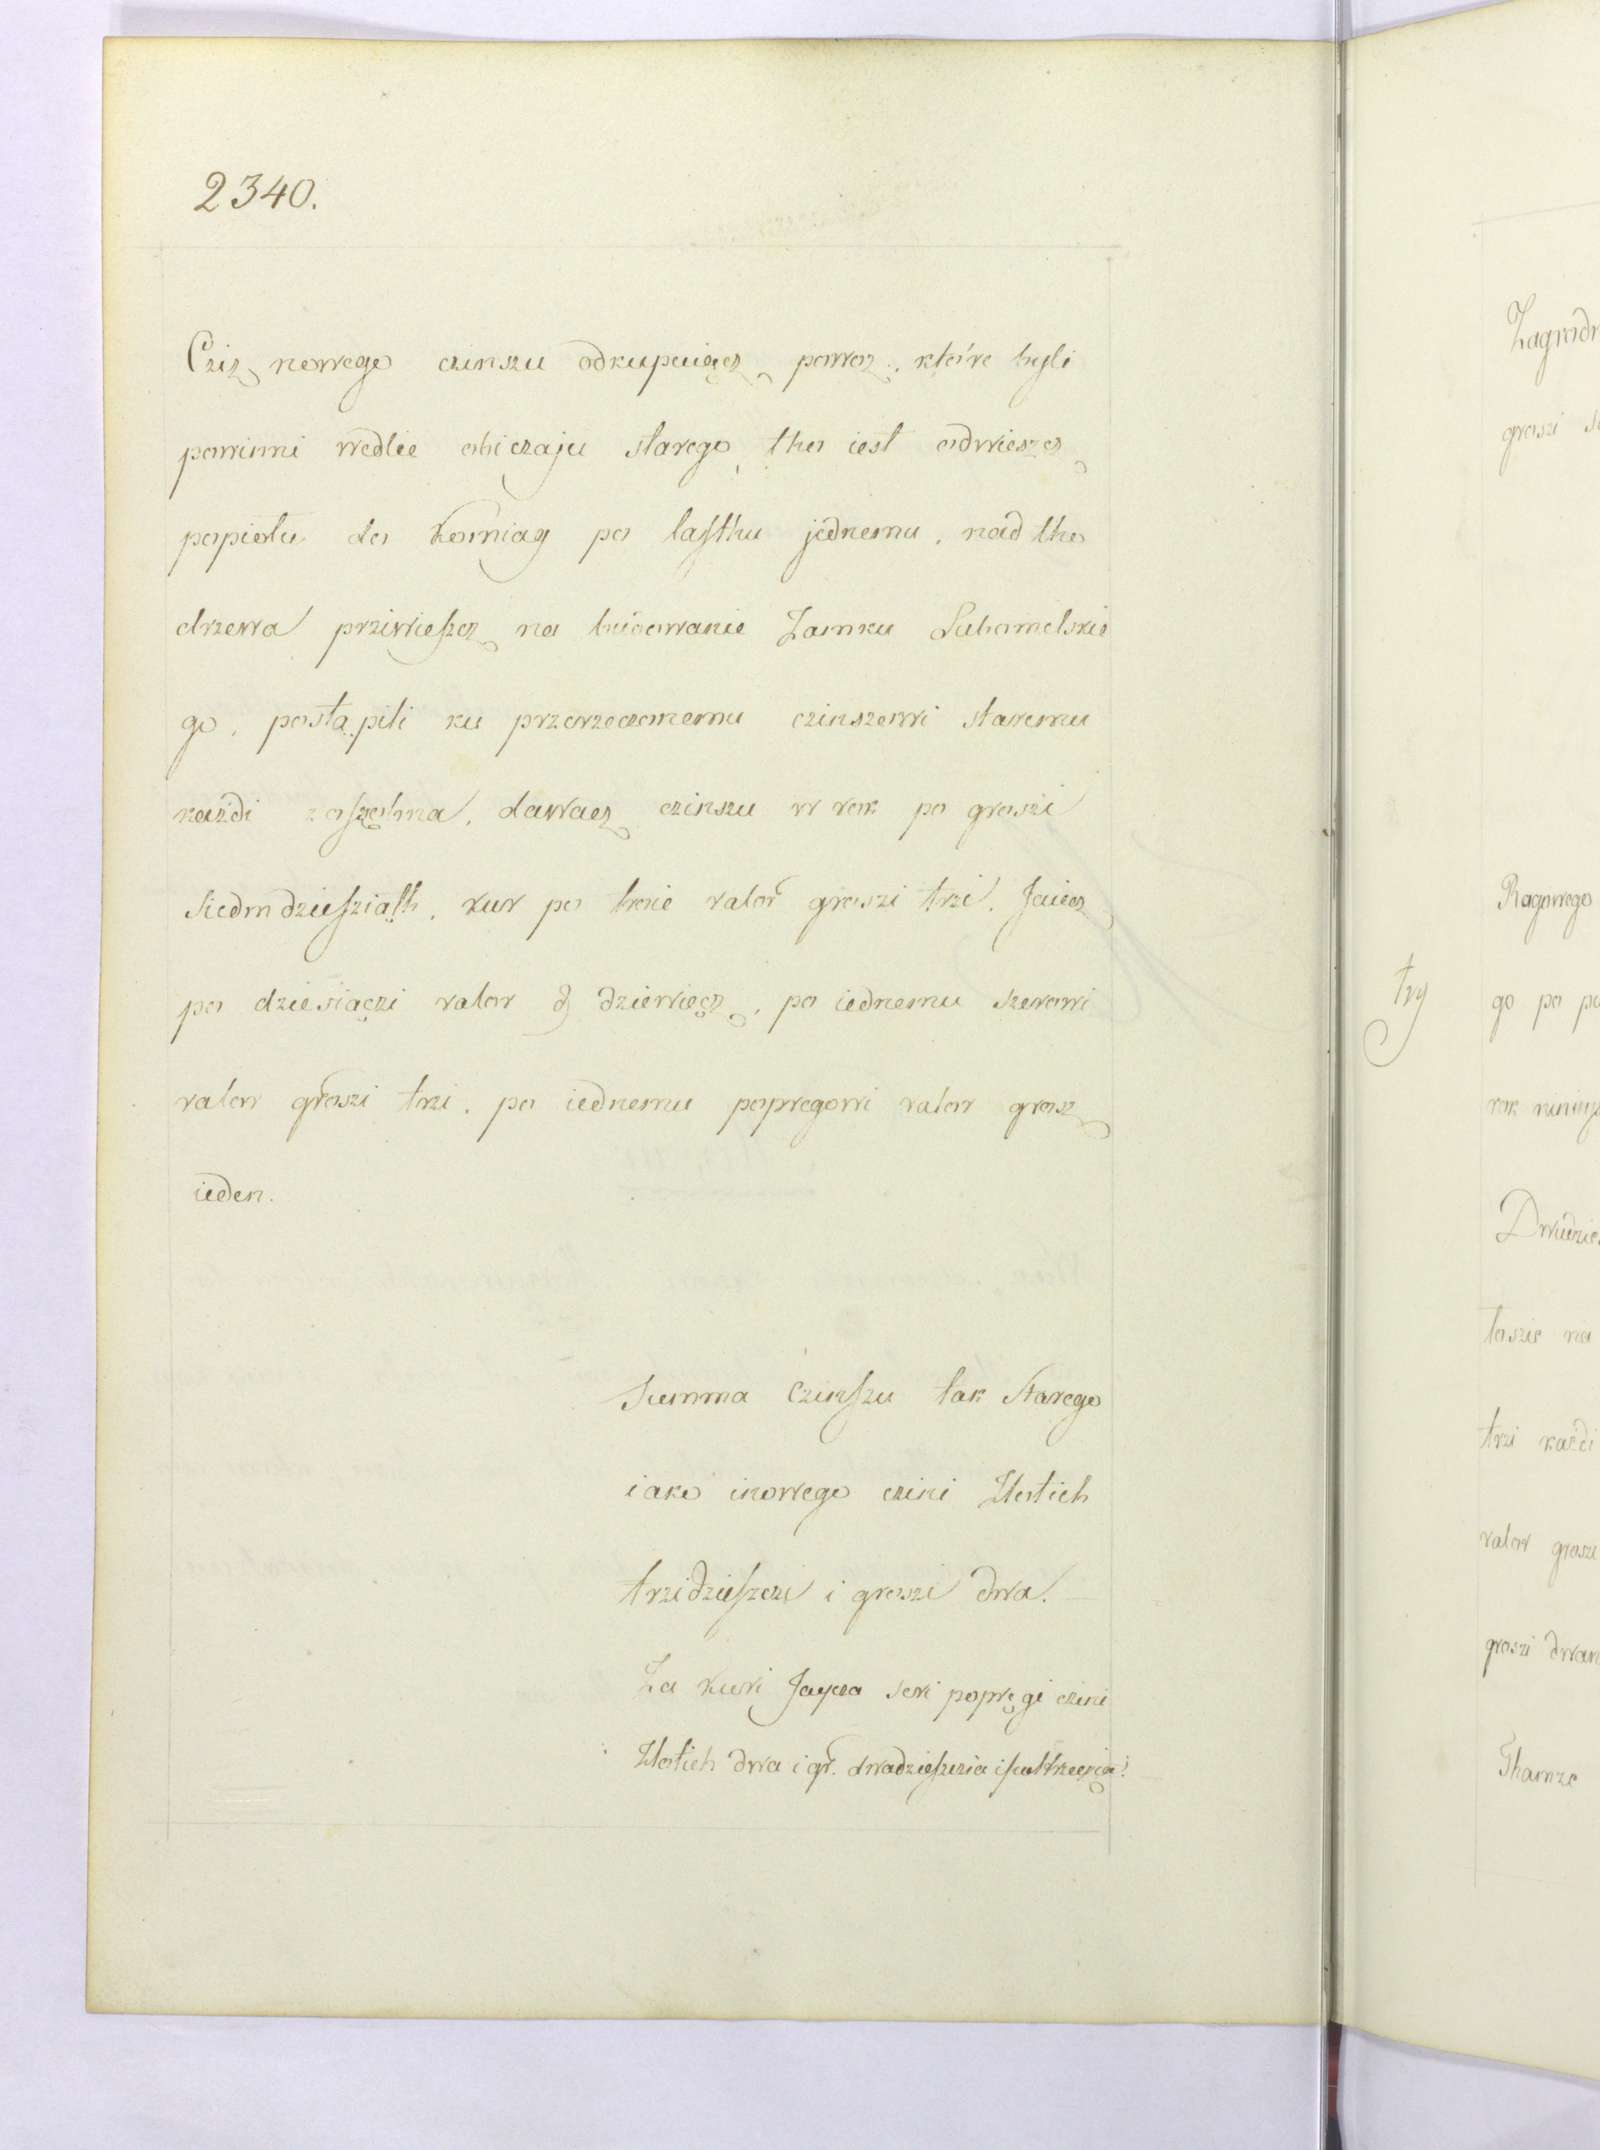 2340.
Cziz nowego czinszu odkupuiącz powoz, które byli
powinni wedlie obiczaju starego, tho iest odwieszcz
popiołu do Komiag po lasthu jednemu, nad tho
drzewa prziwieszcz na budowanie Zamku Lubomelskie
go, postąpili ku przerzeczonemu czinszowi staremu
każdi zoszobna, dawacz czinszu w rok po groszi
siedmdziesziąth, kur po troie valor groszi trzi, Jaiecz
po dziesiączi valor dziewięcz, po iednemu szerowi
valor groszi trzi, po iednemu popregowi valor grosz
ieden.
Summa Czinszu tak Starego
iako inowego czini Złotich
trzidzieszczi i groszi dwa.
Za kuri Jaycza seri popręgi czini
Złotich dwa i gr. dwadzieszczia ipułtrzecia.
Zagrodn
groszi
Rogowego
try
go po
rok
Dwudzies
na
trzi każdi
valor groszi
groszi dwan
Thamze